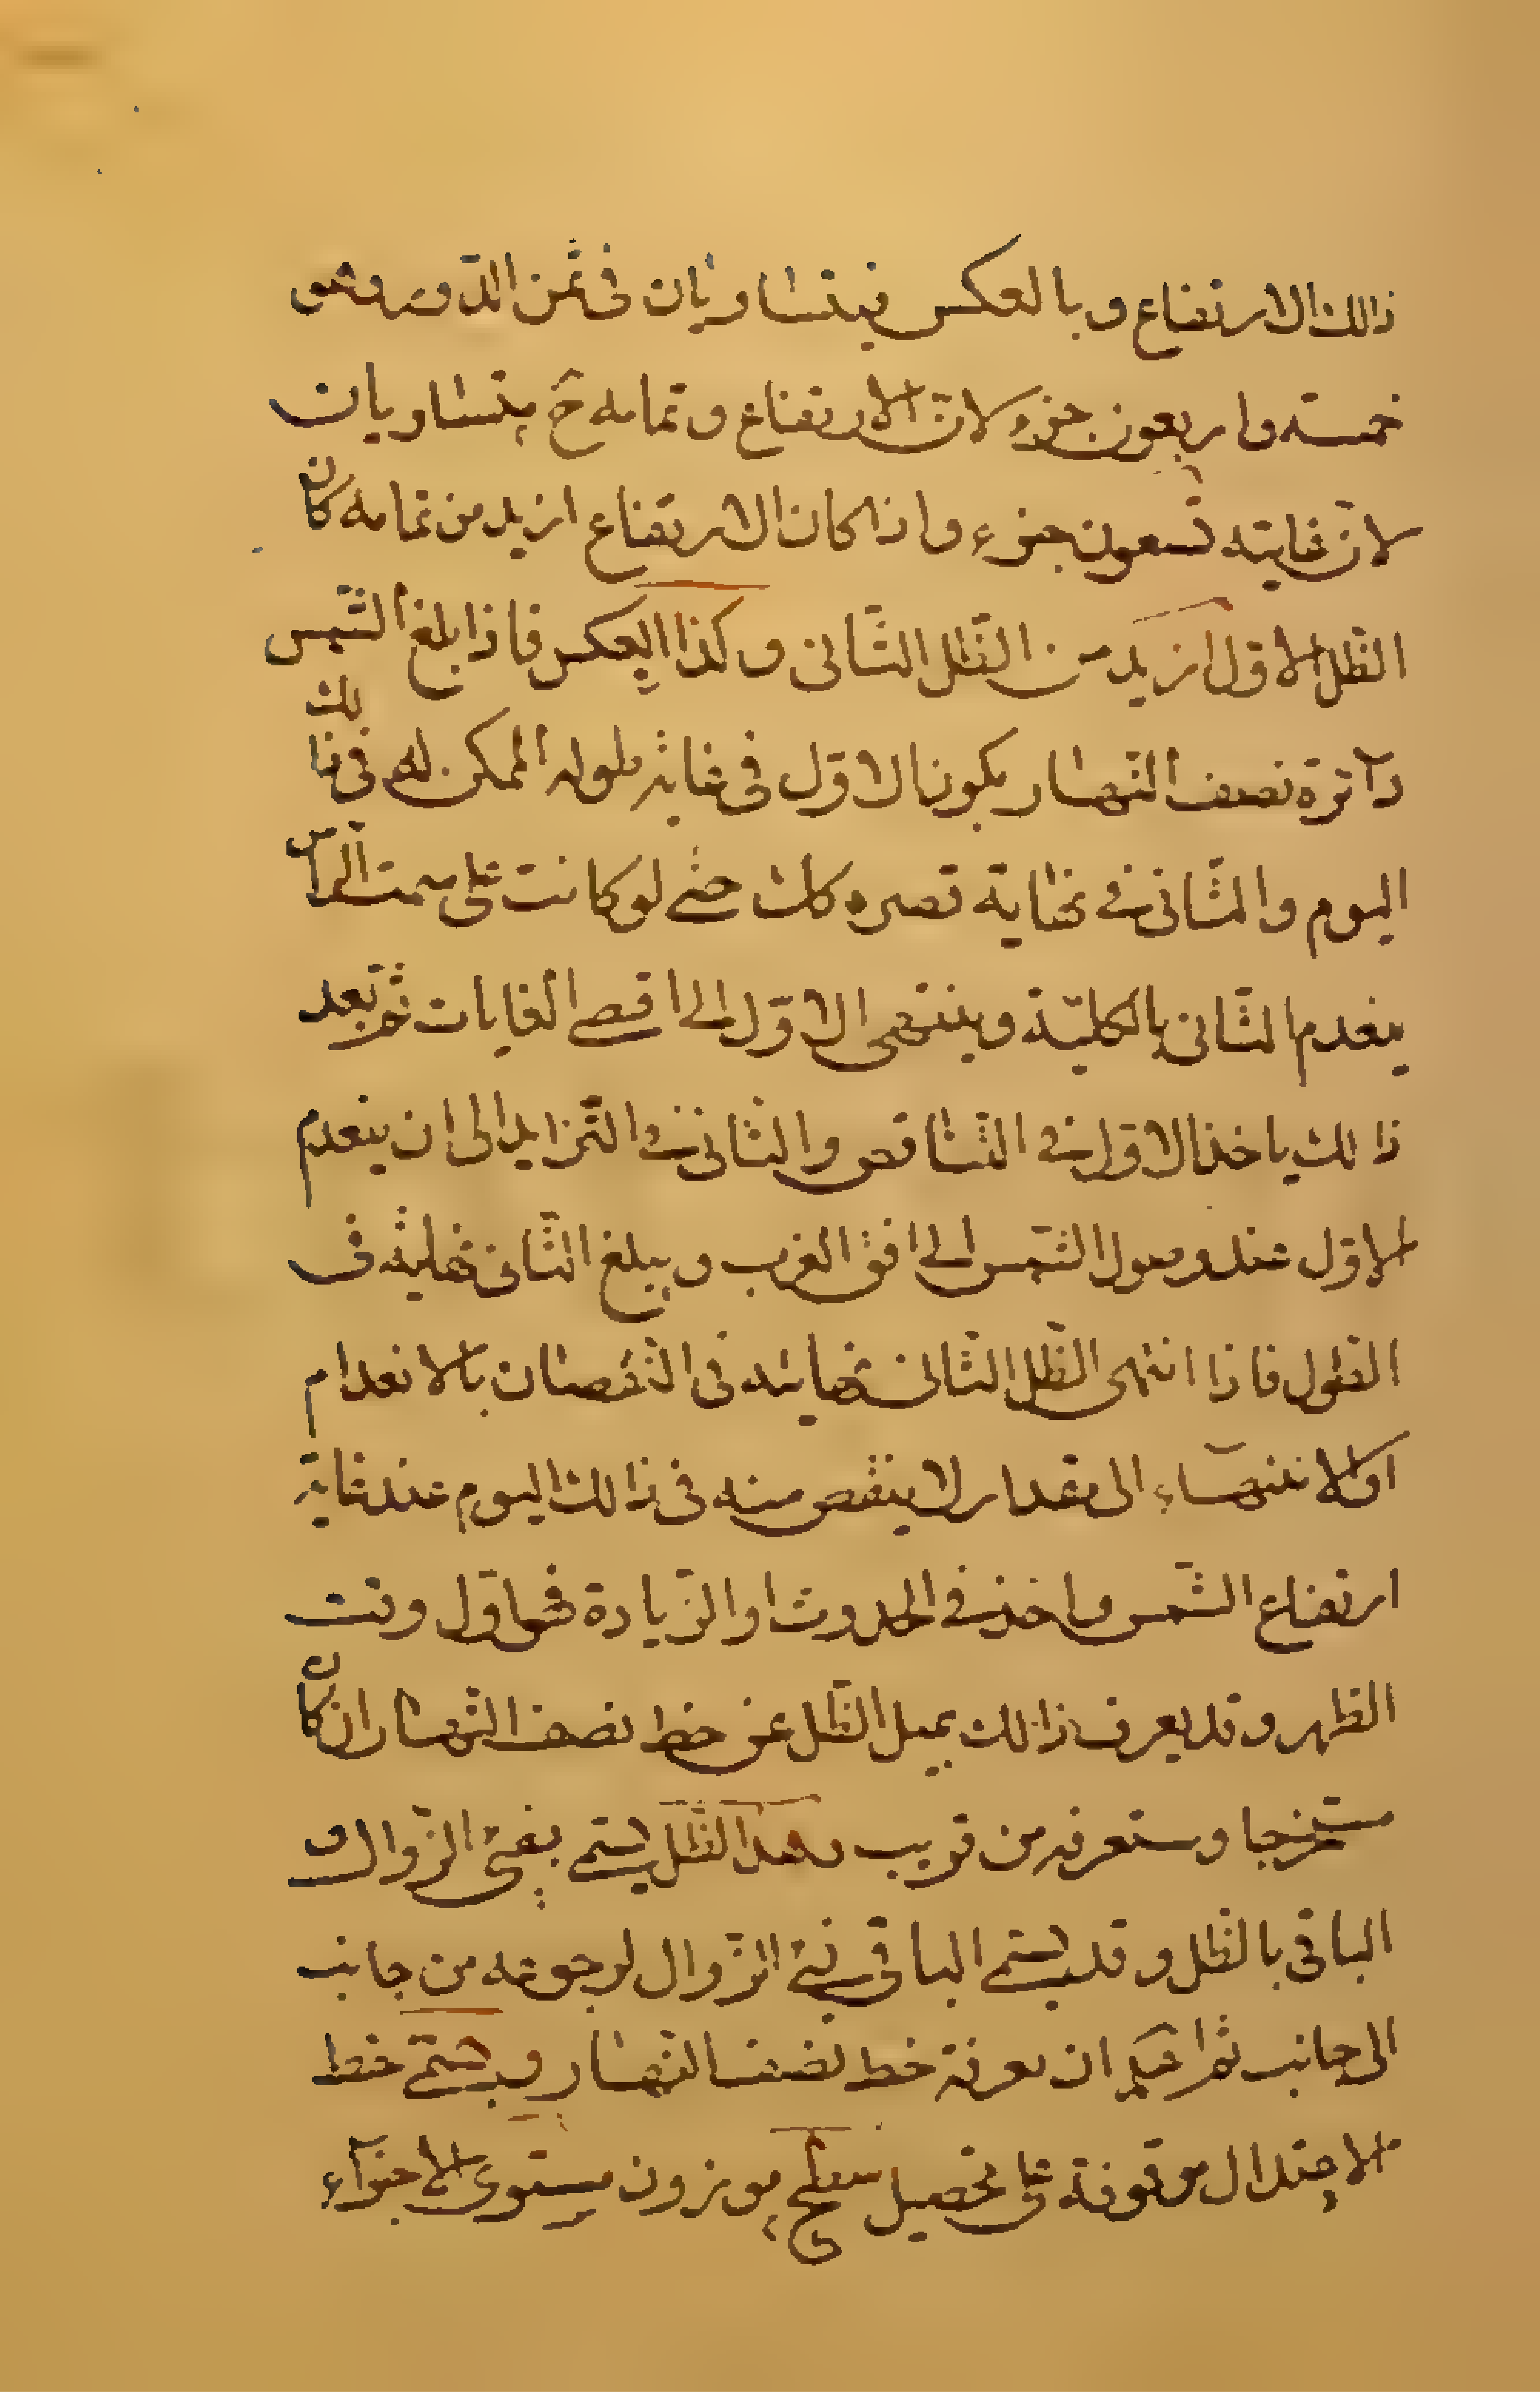 ذالك الارتفاع وبالعكس فيتساويان فى ثمن الدّور وهو
خمسته واربعون جزء لانّ الارتفاع وتمامه حَ يتساويان
لانّ غايته تسعون جزء واذا كان الارتفاع ازيد من تمامه كان
الظل الاوّل ازيد من الظل الثّانى وكذا العكس فاذا بلغ الشّمس
دآئرة نصف النّهار يكون الاوّل فى غاية طوله الممكن له فى ذالك
اليوم والثّانى فى نهاية قصره كك حتّى لو كانت على سمت الرّاس
ينعدم الثّانى بالكليّة وينتهى الاوّل الى اقصى الغايات ثمّ بعد
ذالك ياخذ الاوّل فى التّناقص والثّانى فى التّزايد الى ان ينعدم
الاوّل عند وصول الشّمس الى افق الغرب ويبلغ الثّانى غايته فى
الطّول فاذا انتهى الظّل الثّانى نهايته فى النّقصان بالانعدام
او الانتهاء الى مقدار لا ينقص منه فى ذالك اليوم عند غاية
ارتفاع الشّمس واخذ فى الحدوث او الزّيادة فهو اوّل وقت
الظهر وقد يعرف ذالك بميل الظّل عن خط نصف النّهار ان كان
مستخرجا وستعرفه من قريب وهذا الظّل يسمّى بفئ الزّوال و
الباقى بالظل وقد يسمّى الباقى بفئ الزّوال لرجوعه من جانب
الى جانب ثم اعلم ان معرفة خط نصف النّهار ويسمّى خط
الاعتدال موقوفة على تحصيل سطح موزون مستوى الاجزآء